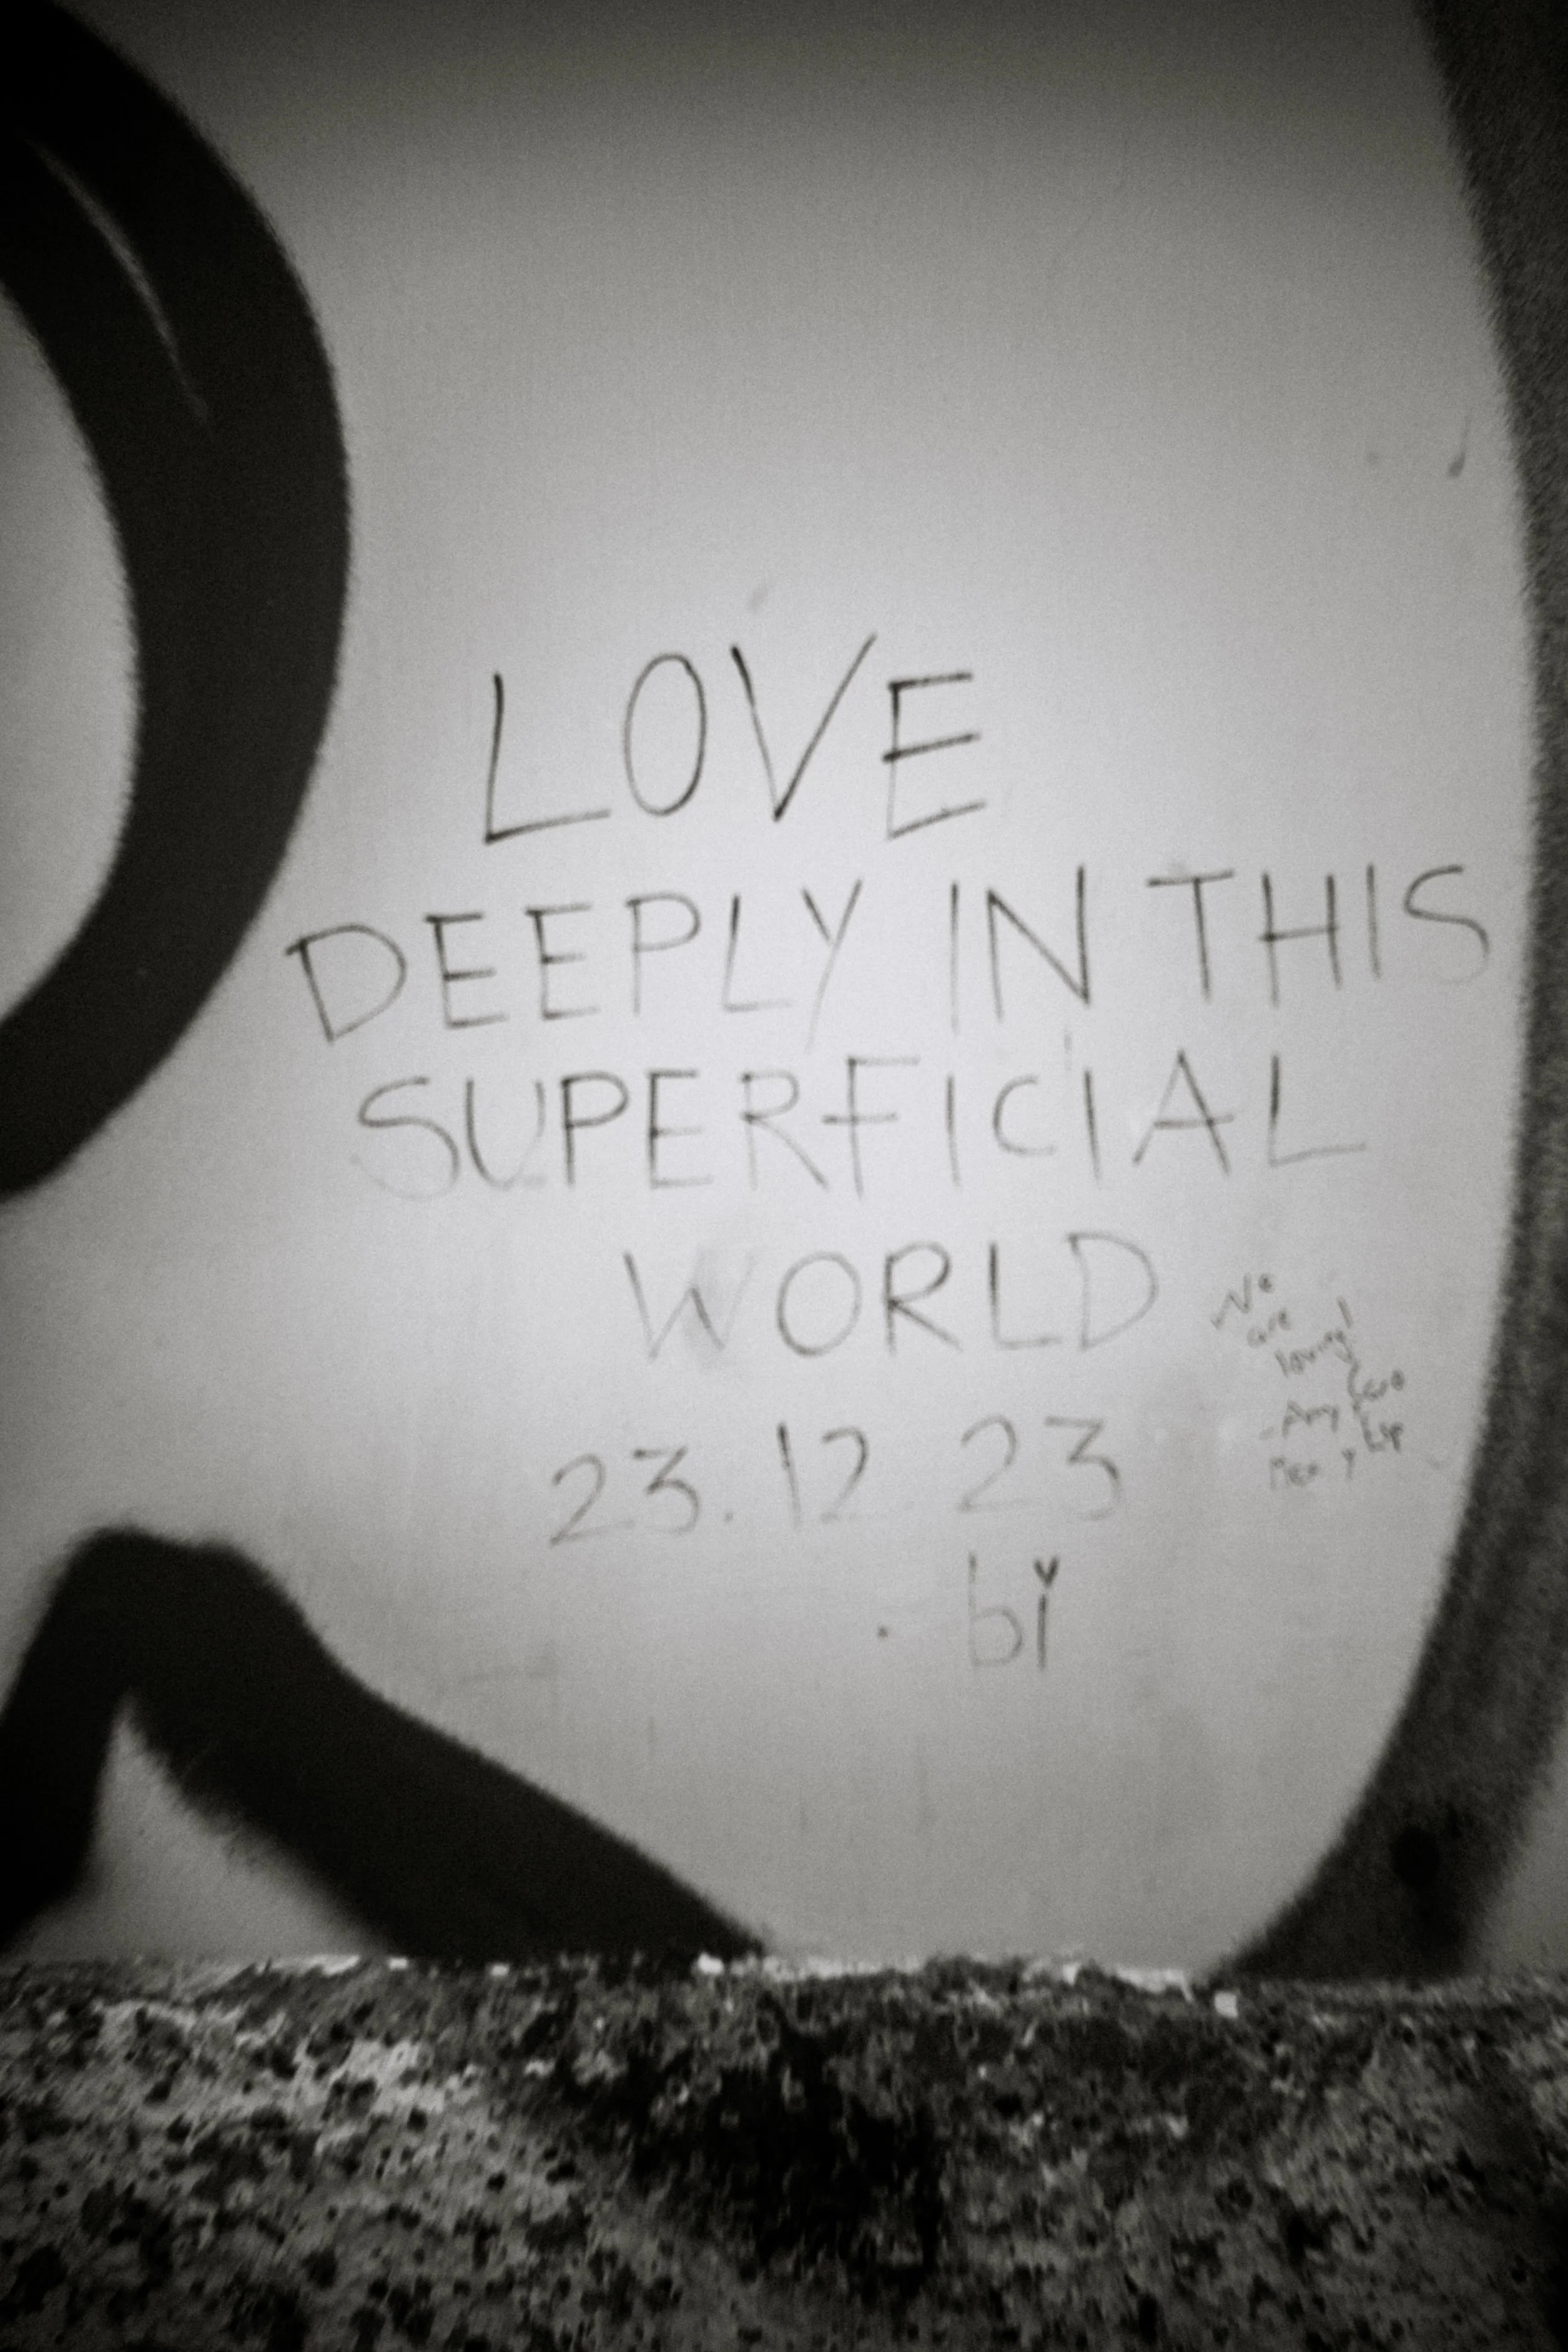 LOVE
DEEPLY IN THIS
SUPERFICIAL
WORLD
23.12 23
bi
We
are
loving!